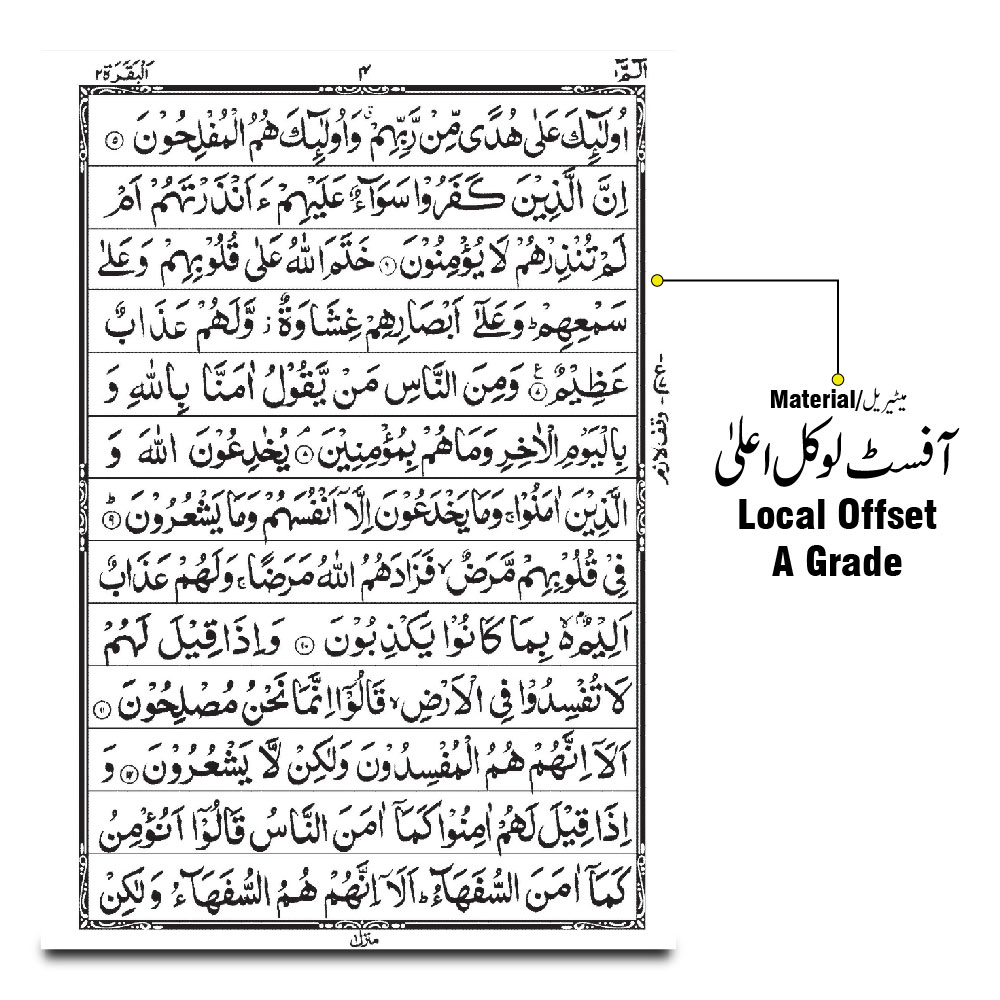 الٓمّٓ ۱
۴
اَلْبَقَرَة ۲
اُولٰٓئِكَ عَلٰى هُدًى مِّنْ رَّبِّهِمْ ۙ وَاُولٰٓئِكَ هُمُ الْمُفْلِحُوْنَ ۵
اِنَّ الَّذِيْنَ كَفَرُوْا سَوَآءٌ عَلَيْهِمْ ءَاَنْذَرْتَهُمْ اَمْ
لَمْ تُنْذِرْهُمْ لَا يُؤْمِنُوْنَ ۶ خَتَمَ اللّٰهُ عَلٰى قُلُوْبِهِمْ وَعَلٰى
سَمْعِهِمْ ؕ وَعَلٰٓى اَبْصَارِهِمْ غِشَاوَةٌ ز وَّلَهُمْ عَذَابٌ
عَظِيْمٌ ۷ ع وَمِنَ النَّاسِ مَنْ يَّقُوْلُ اٰمَنَّا بِاللّٰهِ وَ
بِالْيَوْمِ الْاٰخِرِ وَمَا هُمْ بِمُؤْمِنِيْنَ ۘ ۸ يُخٰدِعُوْنَ اللّٰهَ وَ
الَّذِيْنَ اٰمَنُوْا ۚ وَمَا يَخْدَعُوْنَ اِلَّآ اَنْفُسَهُمْ وَمَا يَشْعُرُوْنَ ؕ ۹
فِيْ قُلُوْبِهِمْ مَّرَضٌ ۙ فَزَادَهُمُ اللّٰهُ مَرَضًا ۚ وَلَهُمْ عَذَابٌ
اَلِيْمٌۢ ۙ۬ بِمَا كَانُوْا يَكْذِبُوْنَ ۱۰ وَاِذَا قِيْلَ لَهُمْ
لَا تُفْسِدُوْا فِي الْاَرْضِ ۙ قَالُوْٓا اِنَّمَا نَحْنُ مُصْلِحُوْنَ ۱۱
اَلَآ اِنَّهُمْ هُمُ الْمُفْسِدُوْنَ وَلٰكِنْ لَّا يَشْعُرُوْنَ ۱۲ وَ
اِذَا قِيْلَ لَهُمْ اٰمِنُوْا كَمَآ اٰمَنَ النَّاسُ قَالُوْٓا اَنُؤْمِنُ
كَمَآ اٰمَنَ السُّفَهَآءُ ؕ اَلَآ اِنَّهُمْ هُمُ السُّفَهَآءُ وَلٰكِنْ
منزل ۱
وقف لازم
Material/میٹیریل
آفسٹ لوکل اعلیٰ
Local Offset
A Grade